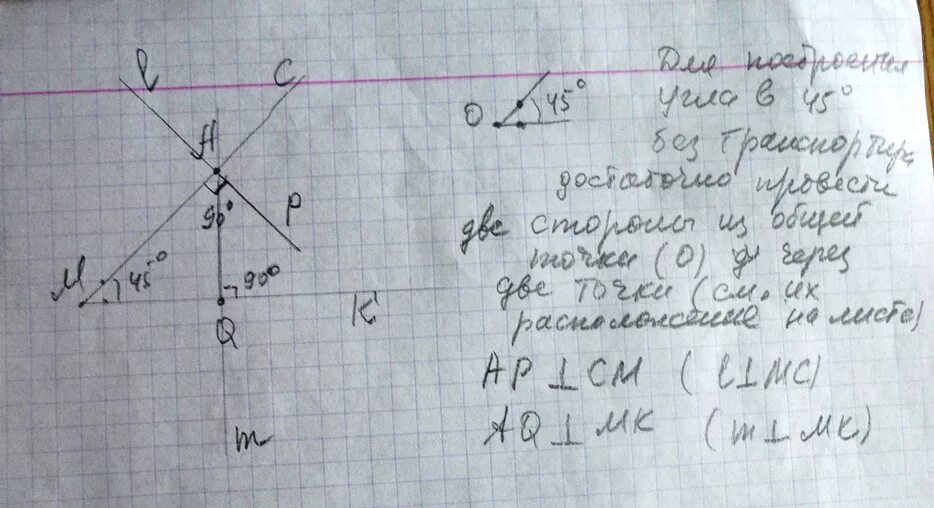 l
C
A
90°
P
M
45°
90°
Q
K
m
O
45°
Для построения
угла в 45°
без транспортира
достаточно провести
две стороны из общей
точки (O) через
две точки (см. их
расположение на листе)
AP⊥CM (l⊥MC)
AQ⊥MK (m⊥MK)